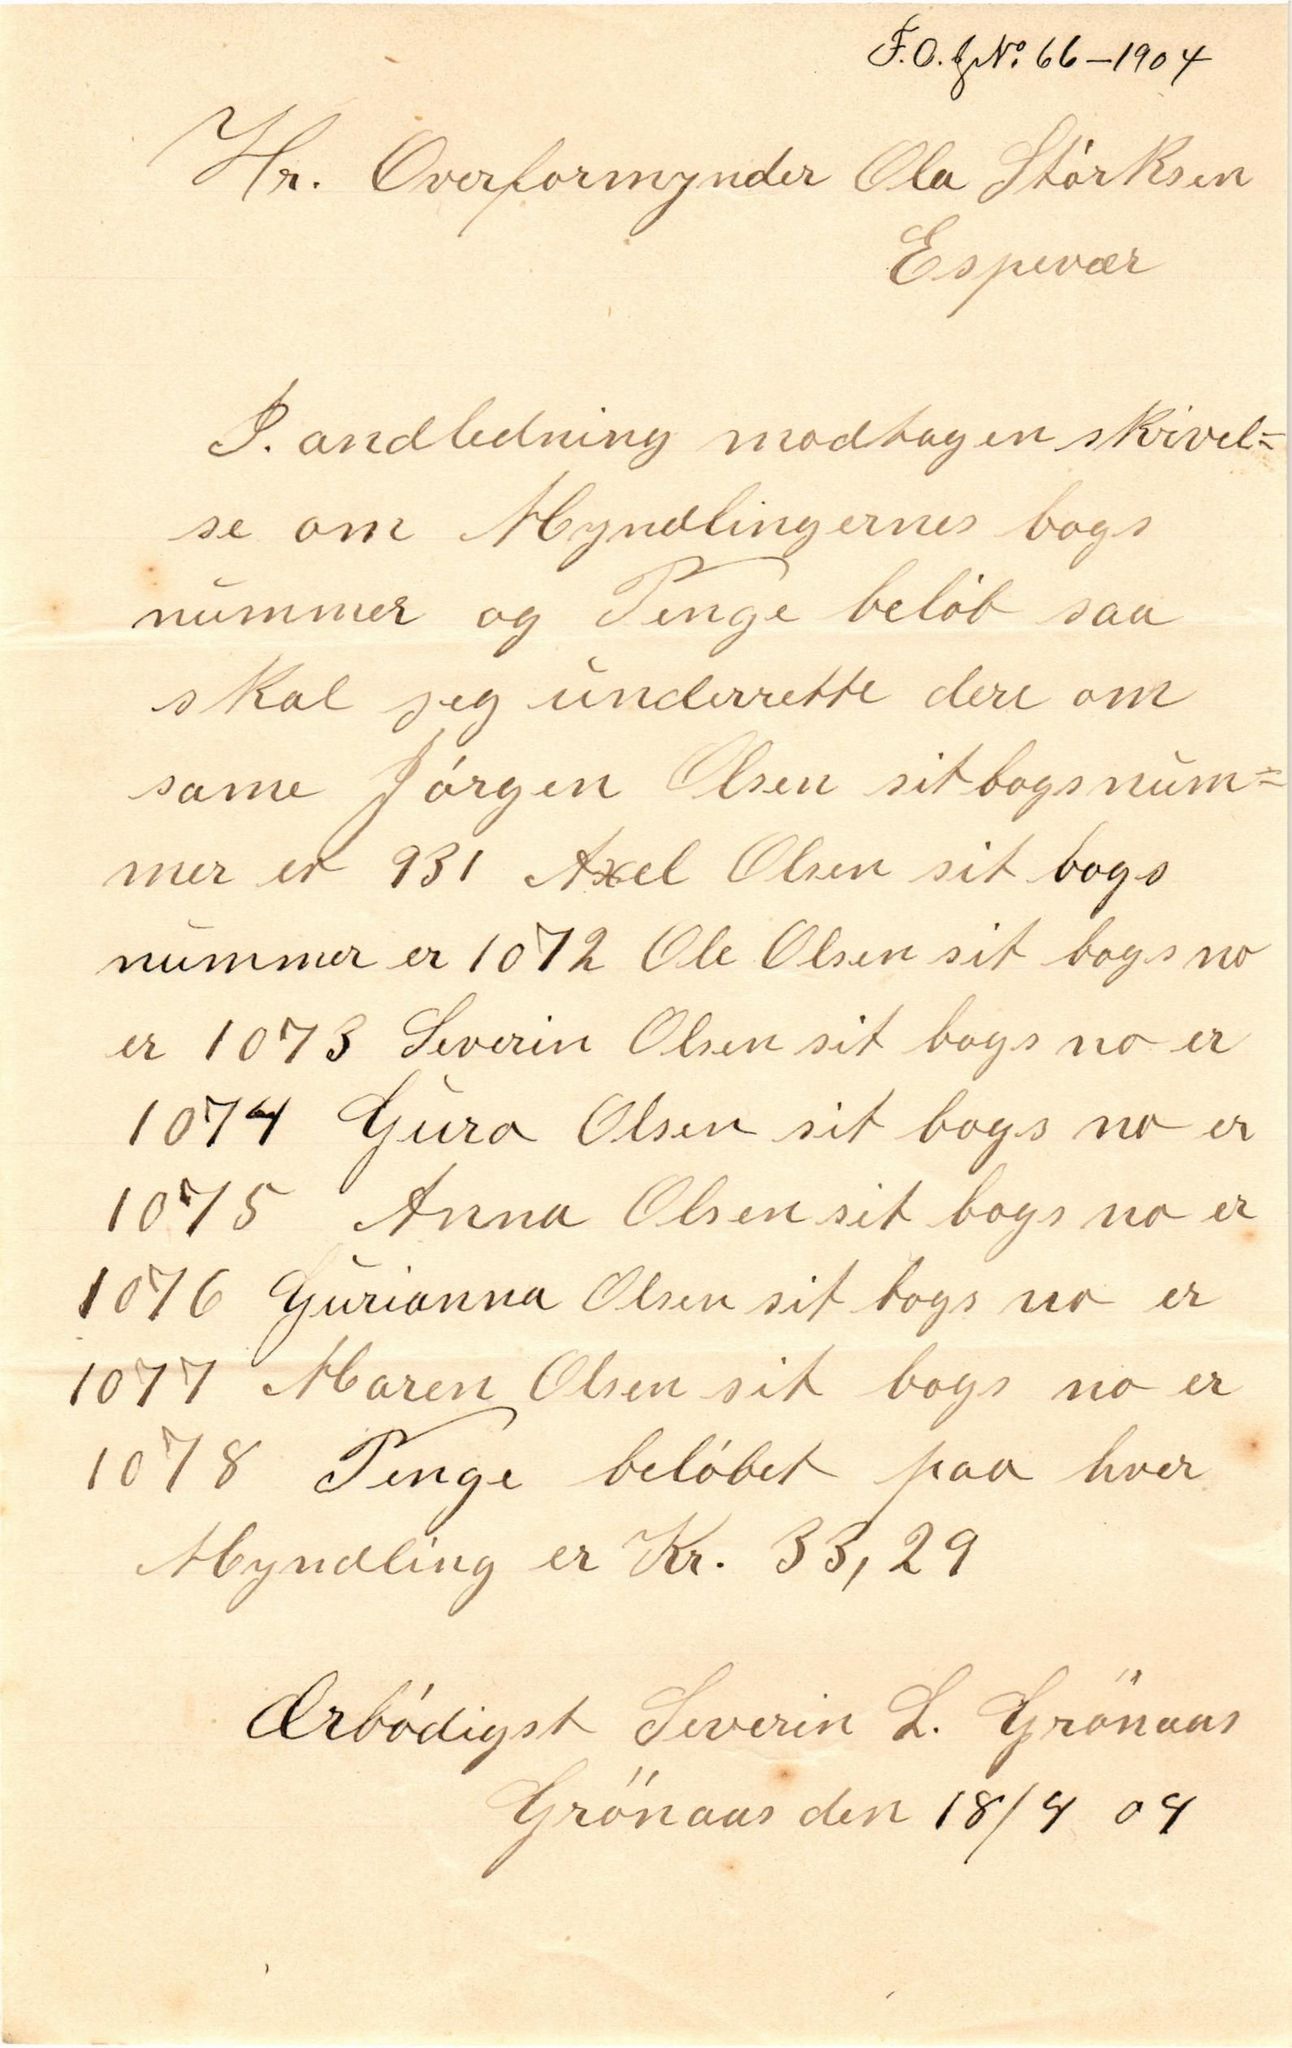 F.O. J№ 66-1904
Hr. Overformynder Ola Störksen
Espevær
I. andledning modtagen skrivel=
se om Myndlingernes bogs
nummer og Penge belöb saa
skal jeg underrette dere om
same Jörgen Olsen sit bogsnum=
mer er 931 Axel Olsen sit bogs
nummer er 1072 Ole Olsen sit bogs no
er 1073 Severin Olsen sit bogs no er
1074 Guro Olsen sit bogs no er
1075 Anna Olsen sit bogs no er
1076 Gurianna Olsen sit bogs no er
1077 Maren Olsen sit bogs no er
1078 Penge belöbet paa hver
Myndling er Kr. 33,29
Ærbödigst Severin L. Grönaas
Grönaas den 18/4 04